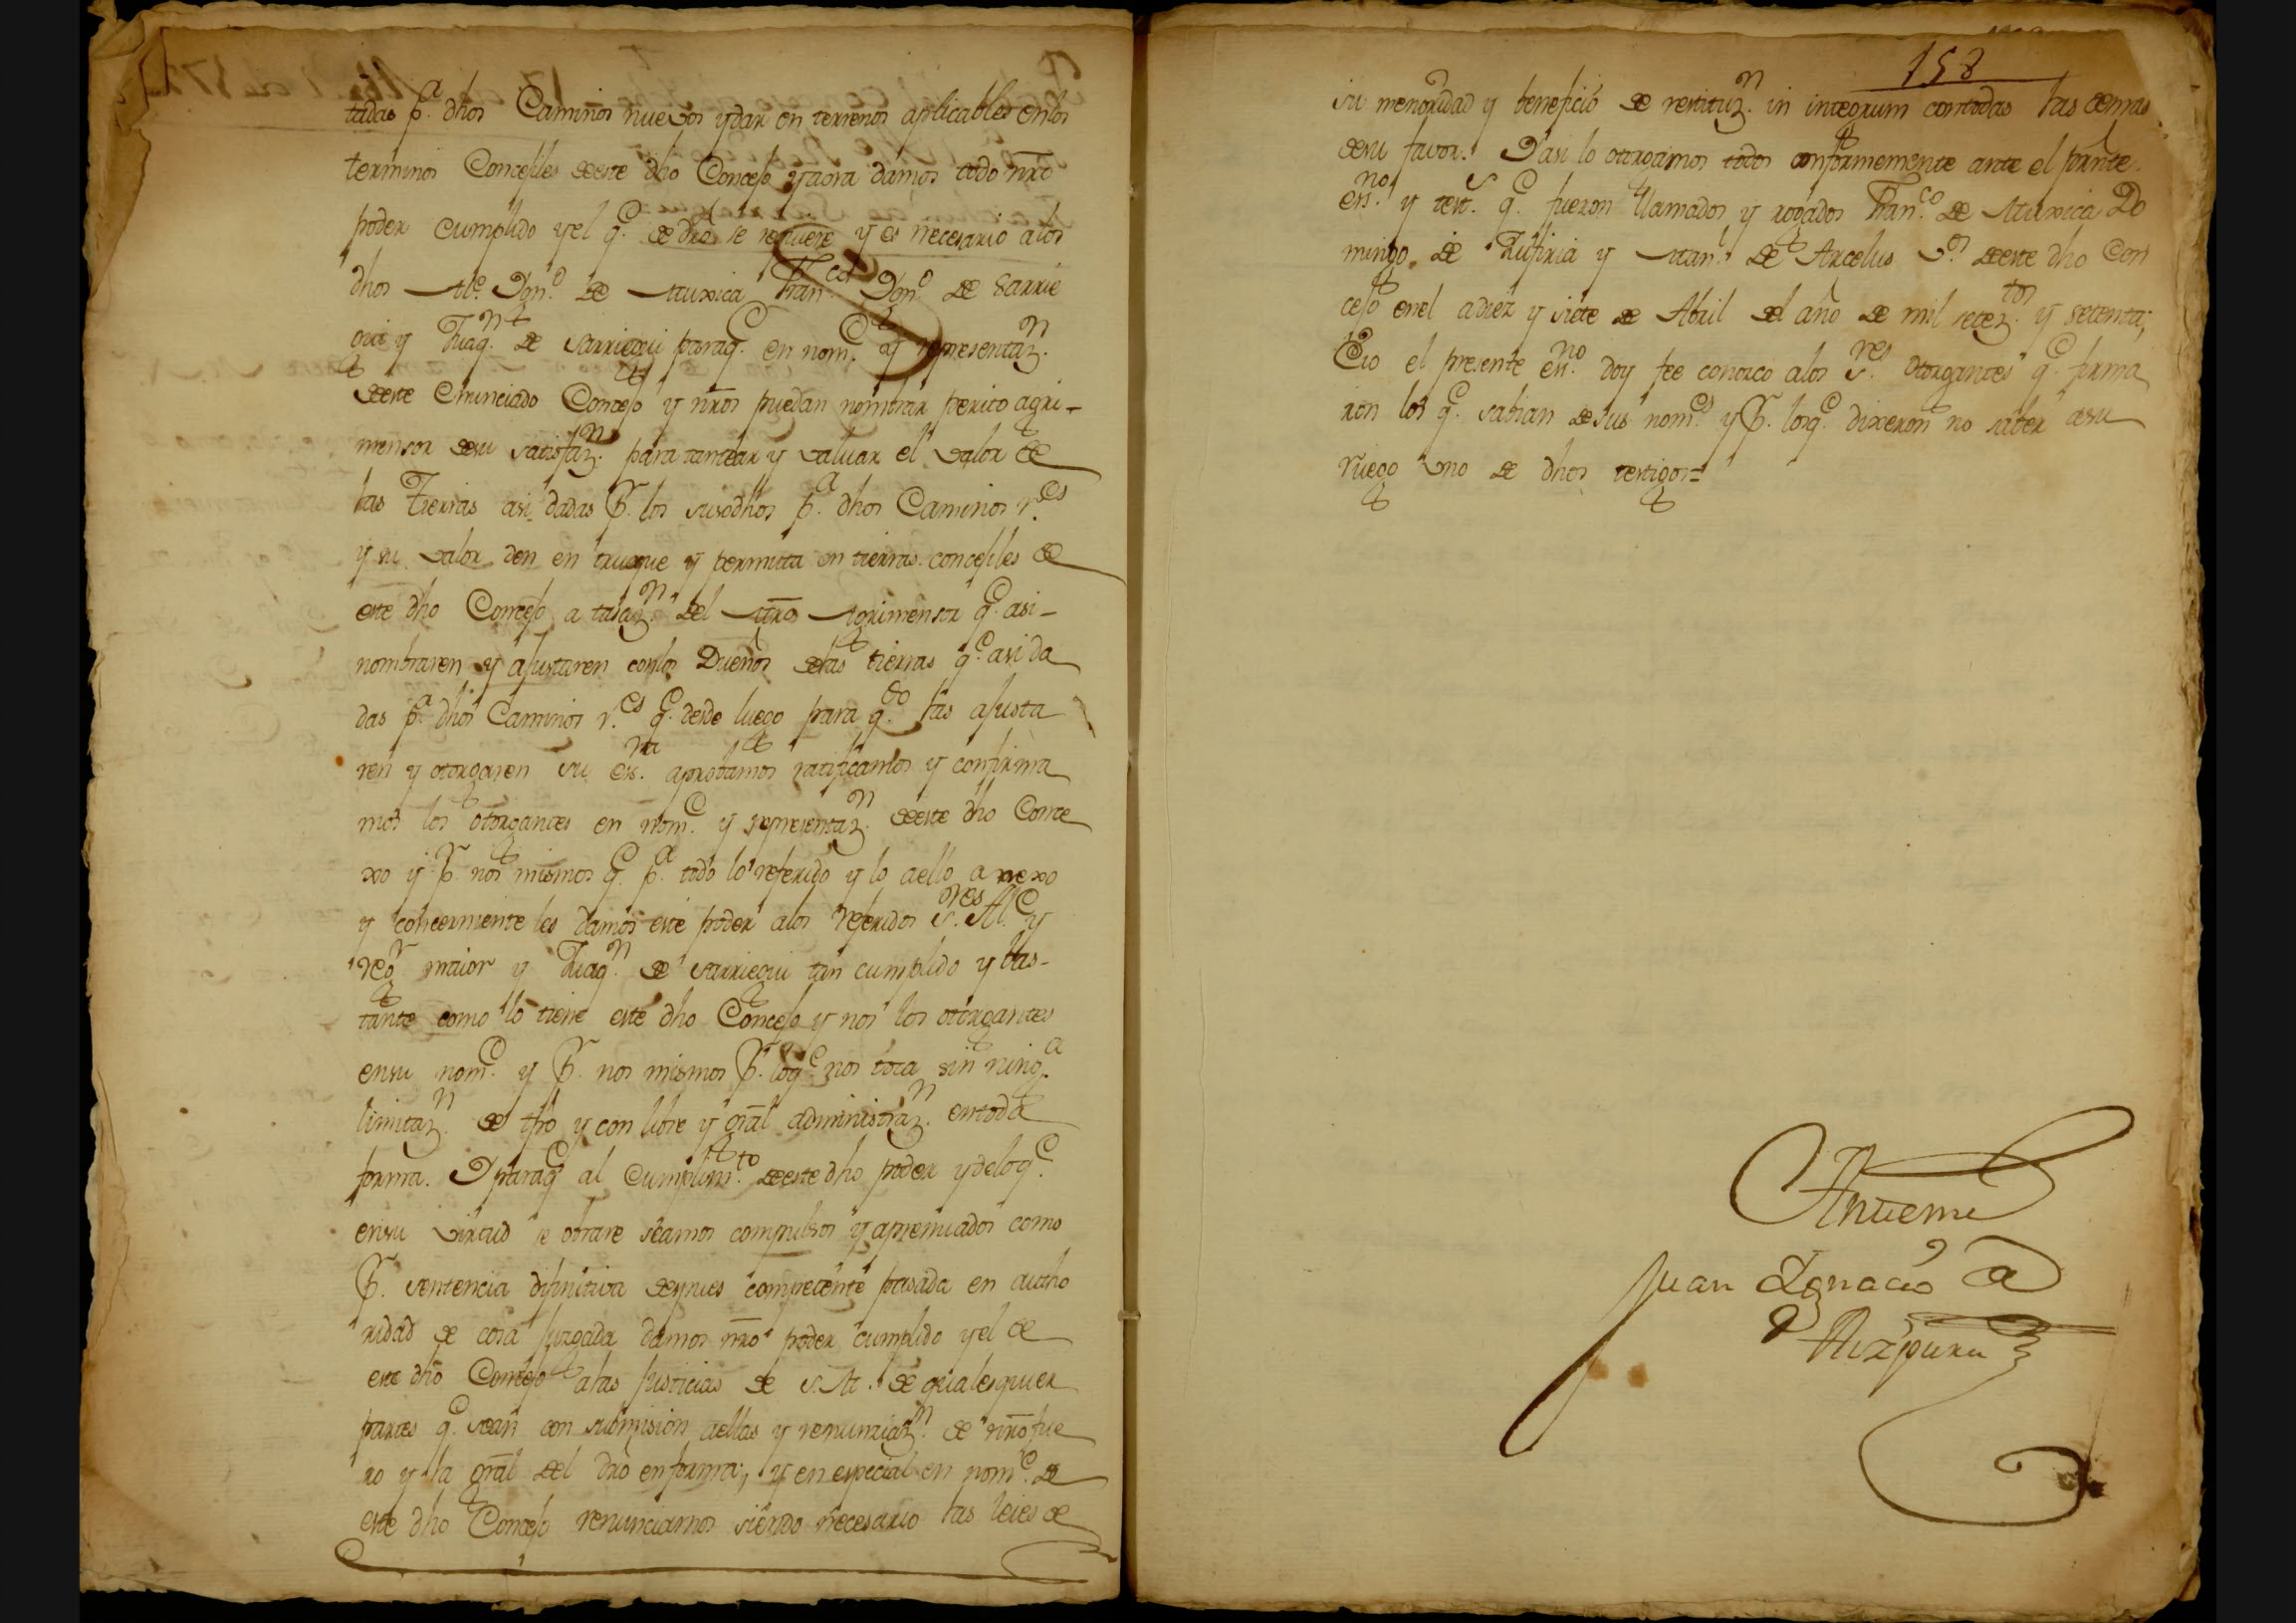 tadas p.ª dhos Caminos nuevos y dar en terrenos aplicables en los
terminos Concejiles de este dho Concejo y aora damos todo nro
poder cumplido y el q.e de dro se requiere y es necesario a los
dhos Al.e Dom.o de Muxica Fran.co Dom.o de Sarrie
gui y Juaq.n de Sarriegui paraq.e en nom.e y representaz.n
de este enunciado Concejo y nros puedan nombrar perito agri-
mensor de su satisfaz.n para tantear y valuar el valor de
las Tierras asi dadas P.r los susodhos p.a dhos Caminos r.es
y su valor den en trueque y permuta en tierras concejiles de
este dho Concejo a tasaz.n del Mro Agrimensor q.e asi-
nombraren y ajustaren con los Dueños de las tierras q.e asi da
das p.a dhos Caminos r.es q.e desde luego para q.do las ajusta
ren y otorgaren su es.ra aprobamos ratificamos y confirma
mos los otorgantes en nom.e y representaz.n de este dho Conce
xo y P.r nos mismos q.e p.a todo lo referido y lo a ello anexo
y concerniente les damos este poder a los referidos S.res Al.e y
reg.r maior y Juaq.n de Sarriegui tan cumplido y bas-
tante como lo tiene este dho Concejo y nos los otorgantes
en su nom.e y P.r nos mismos P.r loq.e nos toca sin ning.a
limitaz.n de tpo y con libre y gral administraz.n en toda
forma. Y paraq.e al cumplim.to de este dho poder y deloq.e
en su virtud se obrare seamos compulsos y apremiados como
P.r sentencia difinitiva de jues competente pasada en autho
ridad de cosa jusgada damos nro poder cumplido y el de
este dho Concejo a las Justicias de S.M. de qualesquier
partes q.e sean con submision a ellas y renunziaz.n de nro fue
ro y la gral del dro en forma; y en especial en nom.e de
este dho Concejo renunciamos siendo necesario las leies de
158
su menoridad y beneficio de restituz.n in integrum con todas las demas
de su favor. Y asi lo otorgamos todos conformemente ante el prnte
es.no y test.s q.e fueron llamados y rogados Fran.co de Muxica Do
mingo de
y
de Arcelus v.s de este dho Con
cejo en el a diez y siete de Abril del año de mil setez.tos y setenta;
E io el presente es.no doy fee conozco a los S.res otorgantes q.e firma
ron los q.e sabian de sus nom.es y P.r losq.e dixeron no saber a su
ruego uno de dhos testigos=
Ante mi
Juan Ignacio de
Aizpuru